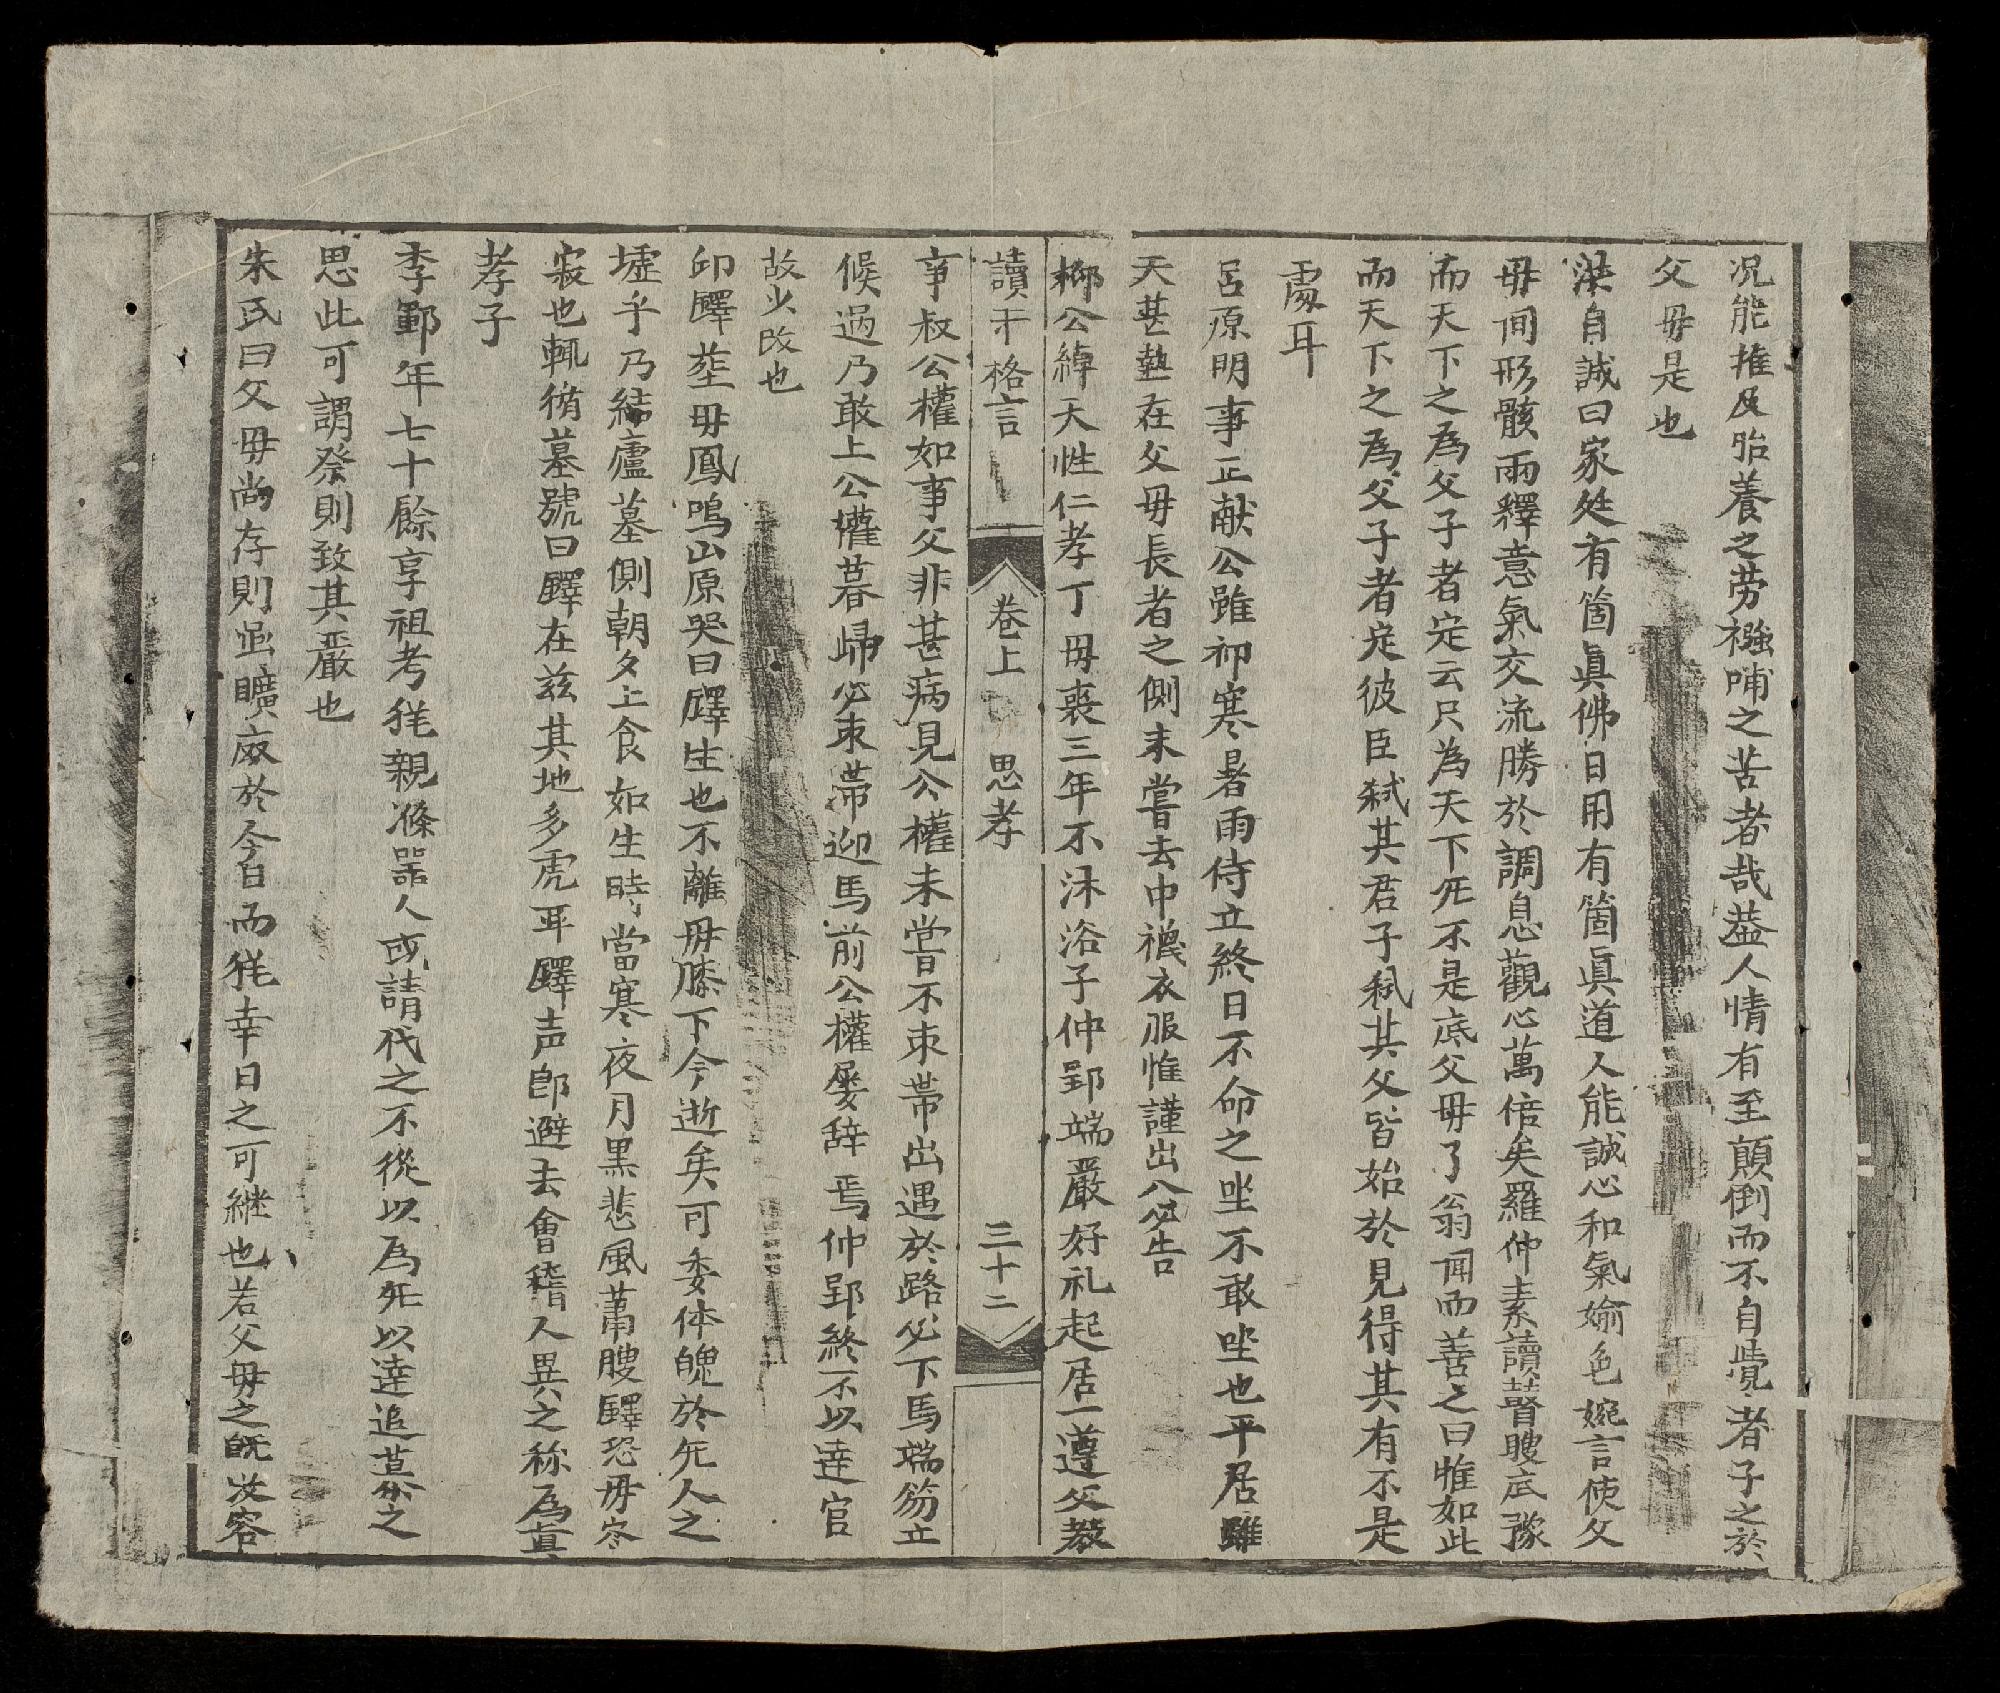 况能推及胎養之劳襁哺之苦者哉葢人情有至顛倒而不自覺者子之於
父毋是也
洪自誠曰家庭有箇眞佛日用有箇眞道人能誠心和氣婾色婉言使父
毋間形骸兩釋意氣交流勝於調息觀心萬倍矣羅仲素讀瞽瞍底豫
而天下之為父子者定云只為天下無不是底父毋了翁聞而善之曰惟如此
而天下之為父子者定彼臣弑其君子弑其父皆始於見得其有不是
處耳
呂原明事正献公雖祁寒暑雨侍立終日不命之坐不敢坐也平居雖
天甚熱在父毋長者之側未嘗去巾襪衣服惟謹出入必告
柳公綽天性仁孝丁毋喪三年不沐浴子仲郢端嚴好礼起居一遵父教
讀書格言 卷上 思孝 三十二
事叔公權如事父非甚病見公權未嘗不束帶出遇於路必下馬端笏立
候過乃敢上公權暮歸必束帶迎馬前公權屡辞焉仲郢終不以達官
故少改也
邱鐸葬毋鳳鳴山原哭曰鐸生也不離毋膝下今逝矣可委体魄於死人之
墟乎乃結廬墓側朝夕上食如生時當寒夜月黒悲風萧䏂鐸恐毋岑
寂也輒循墓號曰鐸在兹其地多虎聞鐸声即避去會稽人異之称為真
孝子
李鄞年七十餘享祖考猶親滌器人或請代之不從以為死以達追慕之
思此可謂祭則致其嚴也
朱氏曰父毋尚存則虽曠廢於今日而猶幸日之可継也若父毋之既没容